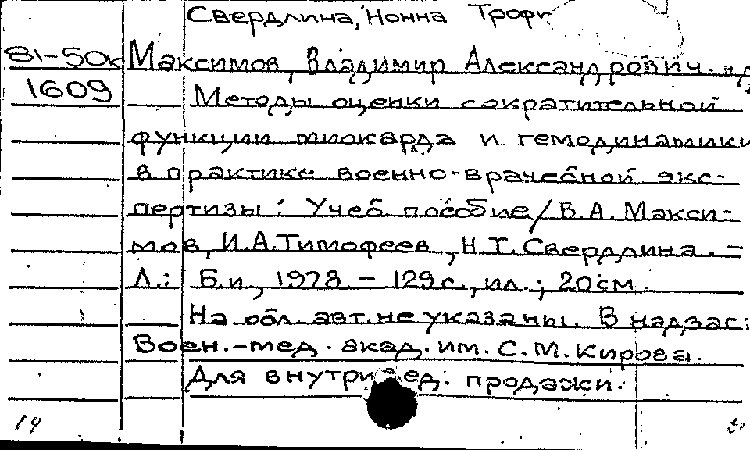 Свердлина, Нонна Троф
81-50к Максимов, Владимир Александрович. и д
1609 Методы оценки сократительной
функции миокарда и гемодинамики
в практике военно-врачебной экс-
пертизы : Учеб. пособие / В.А. Макси-
мов, И.А. Тимофеев, Н.Т. Свердлина. –
Л.: Б.и., 1978. – 129 с., ил.; 20 см.
На обл. авт. не указаны. В надзаг:
Воен.-мед. акад. им. С.М. Кирова.
Для внутривед. продажи.